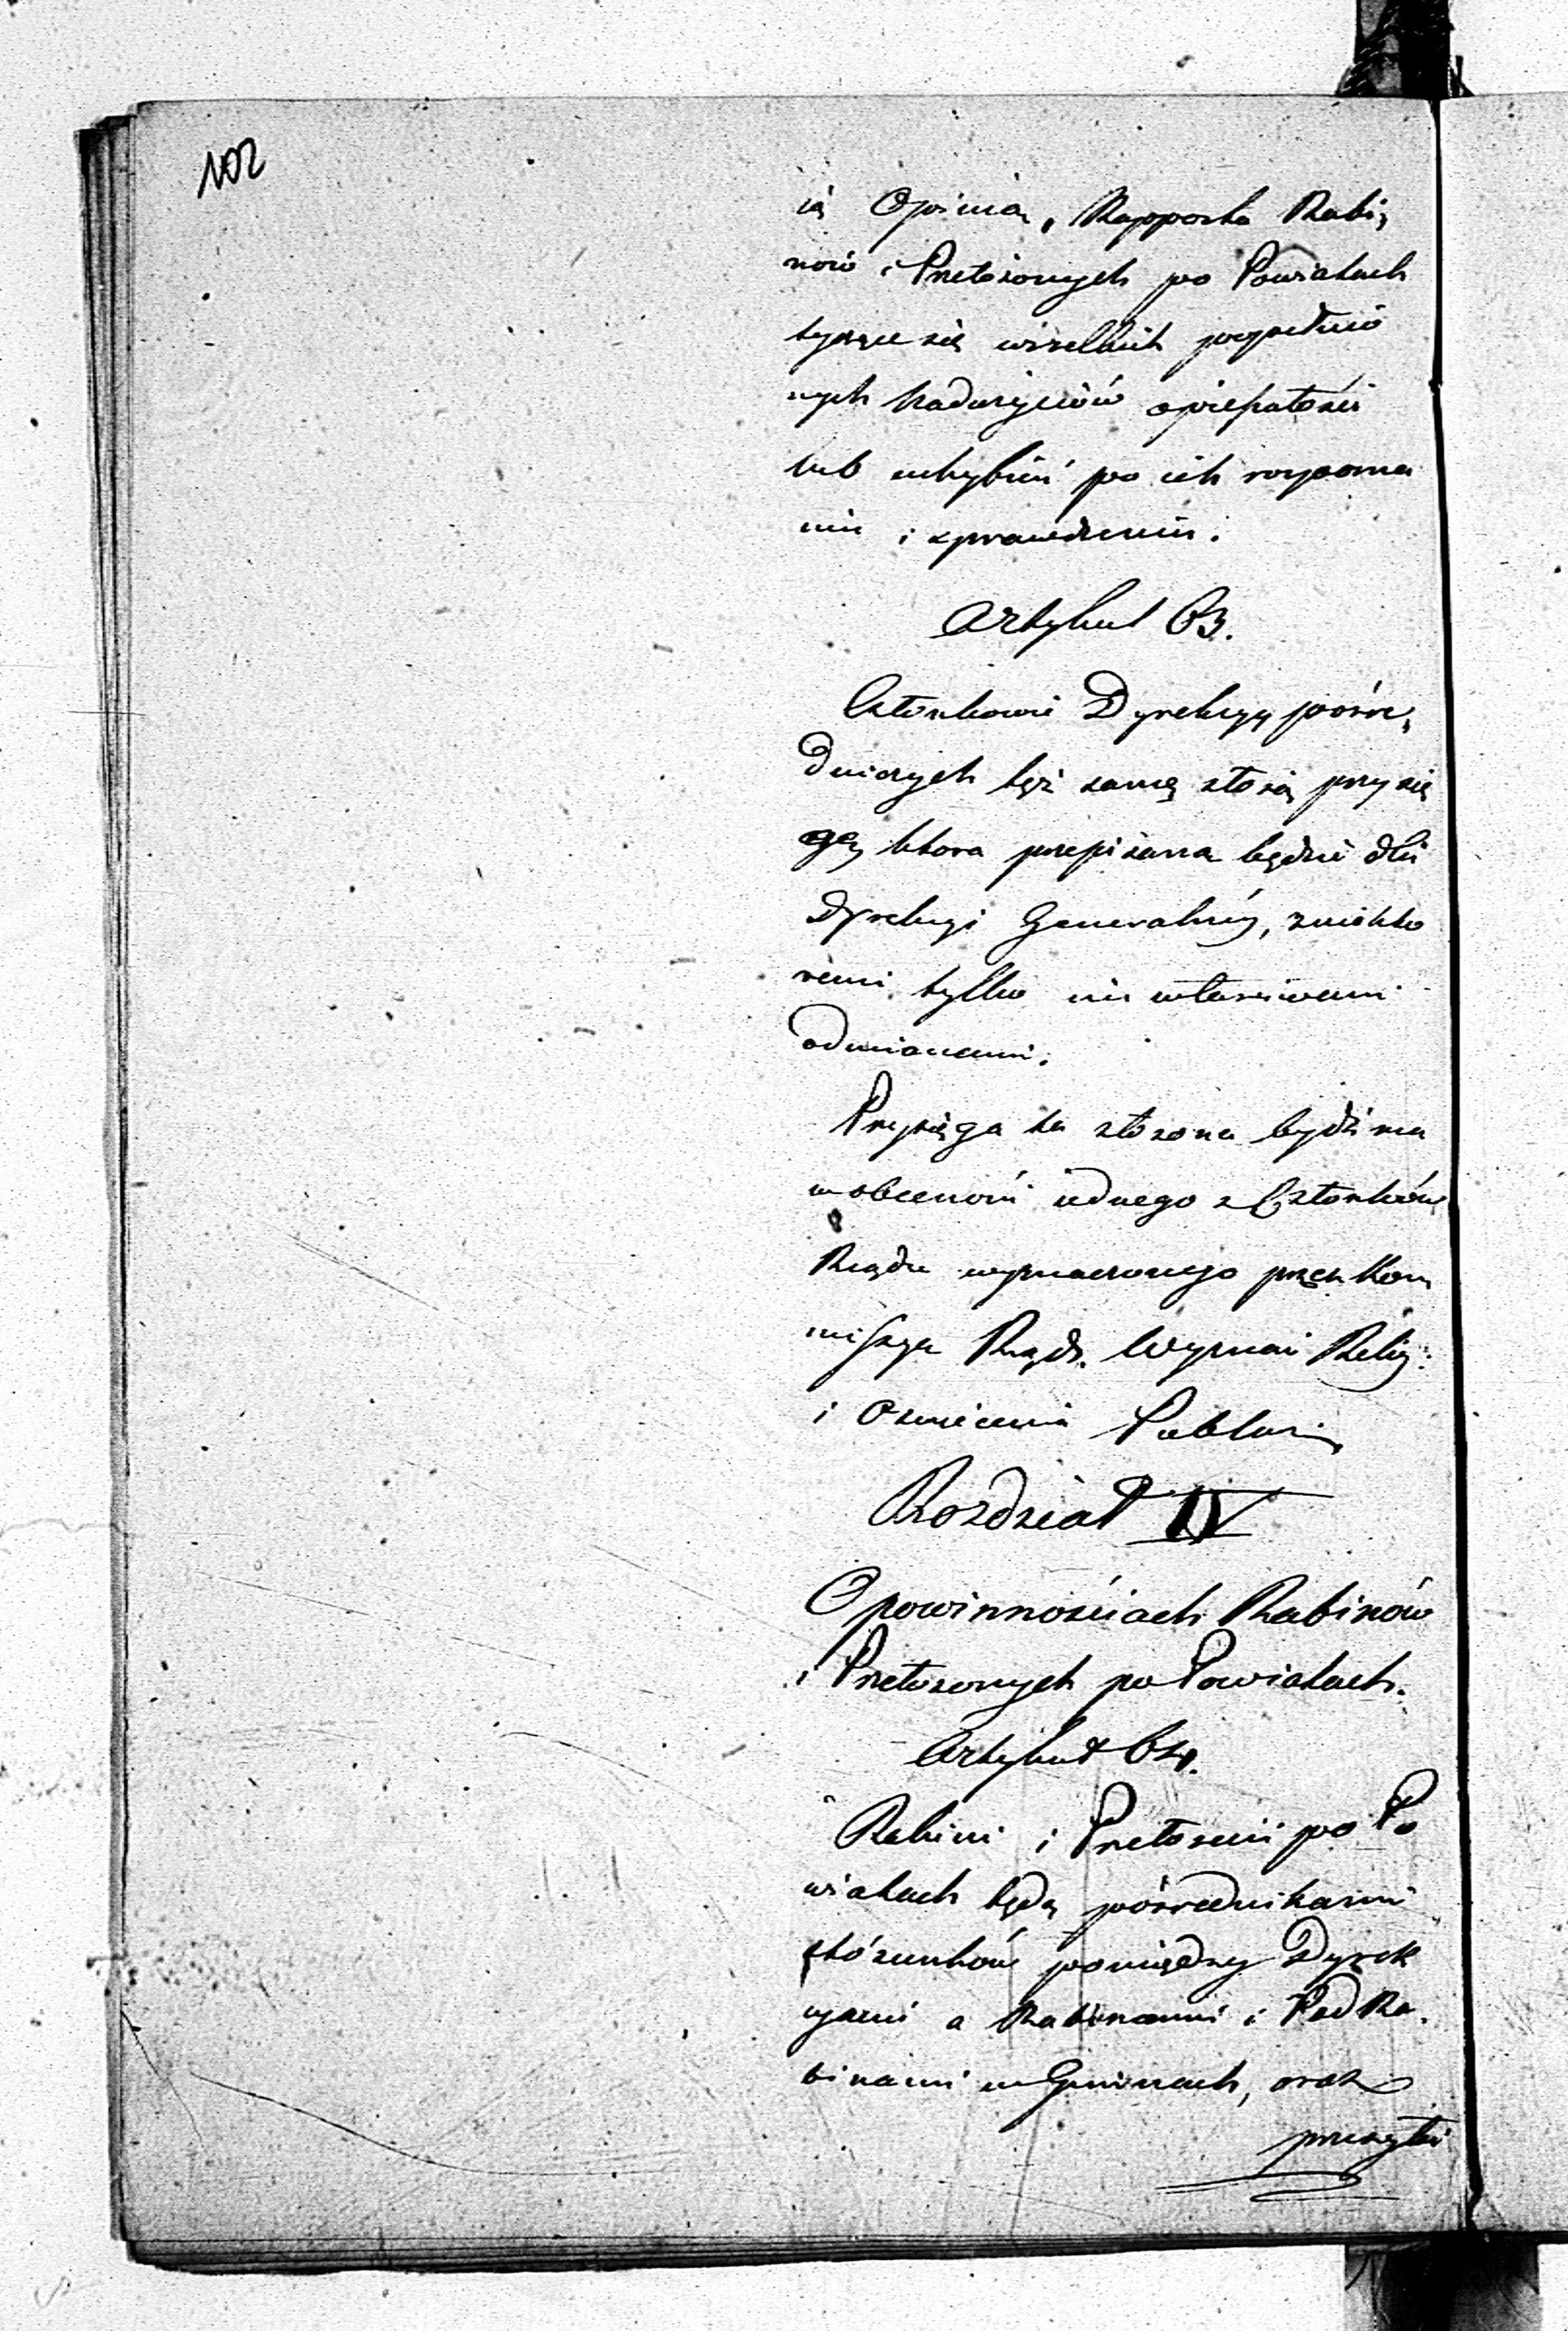 102
ią Opinią, Rapporta Rabi,
nów i Przełożonych po Powiatach
tyczące się wszelkich popełnio
nych Nadużyciów opieszałości
lub uchybień po ich rozpozna
niu i sprawdzeniu.
Artykuł 63.
Członkowie Dyrekcyy pośre,
dniczych też samę złożą przysię
gę, ktora przepisana będzie dla
Dyrekcyi Generalnéy, z niekto
remi tylko im właściwemi
odmianami.
Przysięga ta złożona będzie
w obecności iednego z Członków
Rządu wyznaczonego przez Kom
missyą Rząd. Wyznań Relig:
i Oswiecenia Publ.
Rozdział IV
O powinnościach Rabinów
i Przełożonych po Powiatach.
Artykuł 64.
Rabini i Przełożeni po Po
wiatach będą pośrednikami
stósunków pomiędzy Dyrek
cyami a Rabinami i PodRa
binami w Gminach, oraz